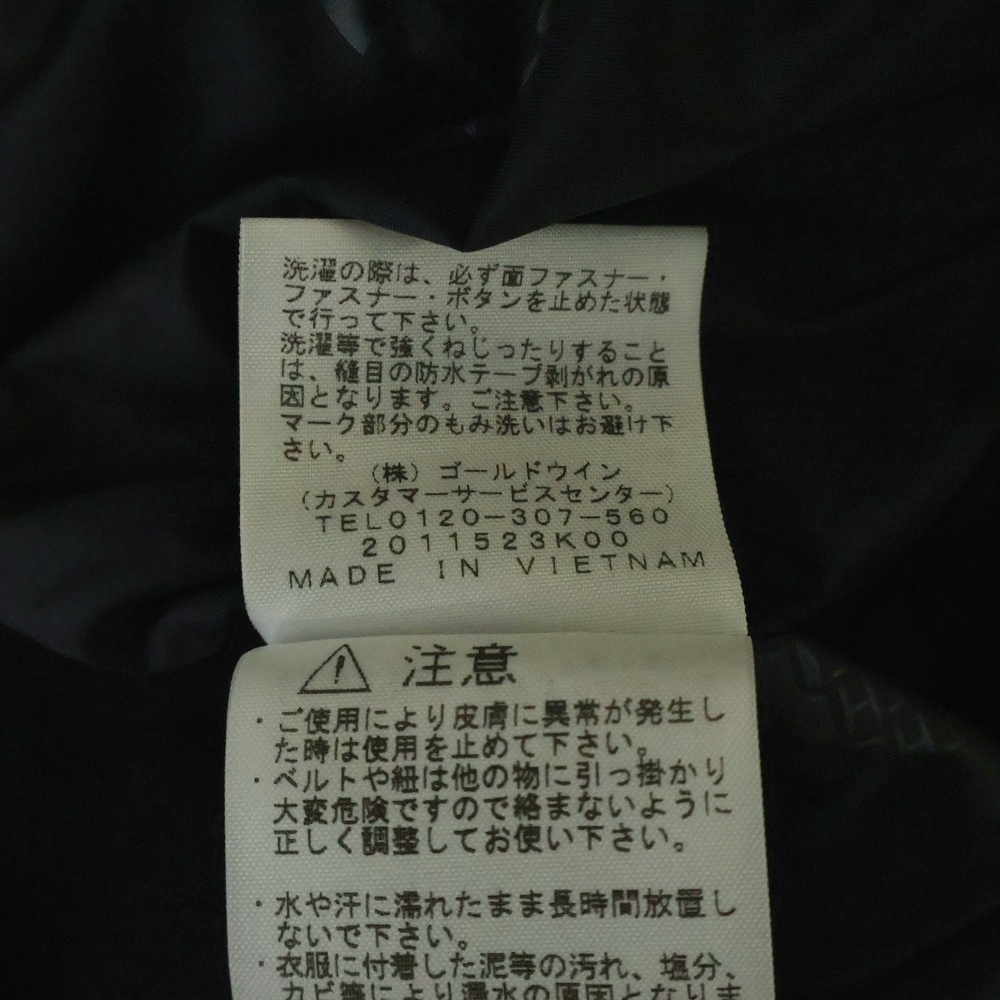 洗濯の際は、必ず面ファスナー・
ファスナー・ボタンを止めた状態
で行って下さい。
洗濯等で強くねじったりすること
は、縫目の防水テープ剥がれの原
因となります。ご注意下さい。
マーク部分のもみ洗いはお避け下
さい。
(株)ゴールドウイン
(カスタマーサービスセンター)
TEL0120-307-560
2011523K00
MADE IN VIETNAM
注意
・ご使用により皮膚に異常が発生し
た時は使用を止めて下さい。
・ベルトや紐は他の物に引っ掛かり
大変危険ですので絡まないように
正しく調整してお使い下さい。
・水や汗に濡れたまま長時間放置し
ないで下さい。
・衣服に付着した泥等の汚れ、塩分、
カビ等により漏水の原因となりま